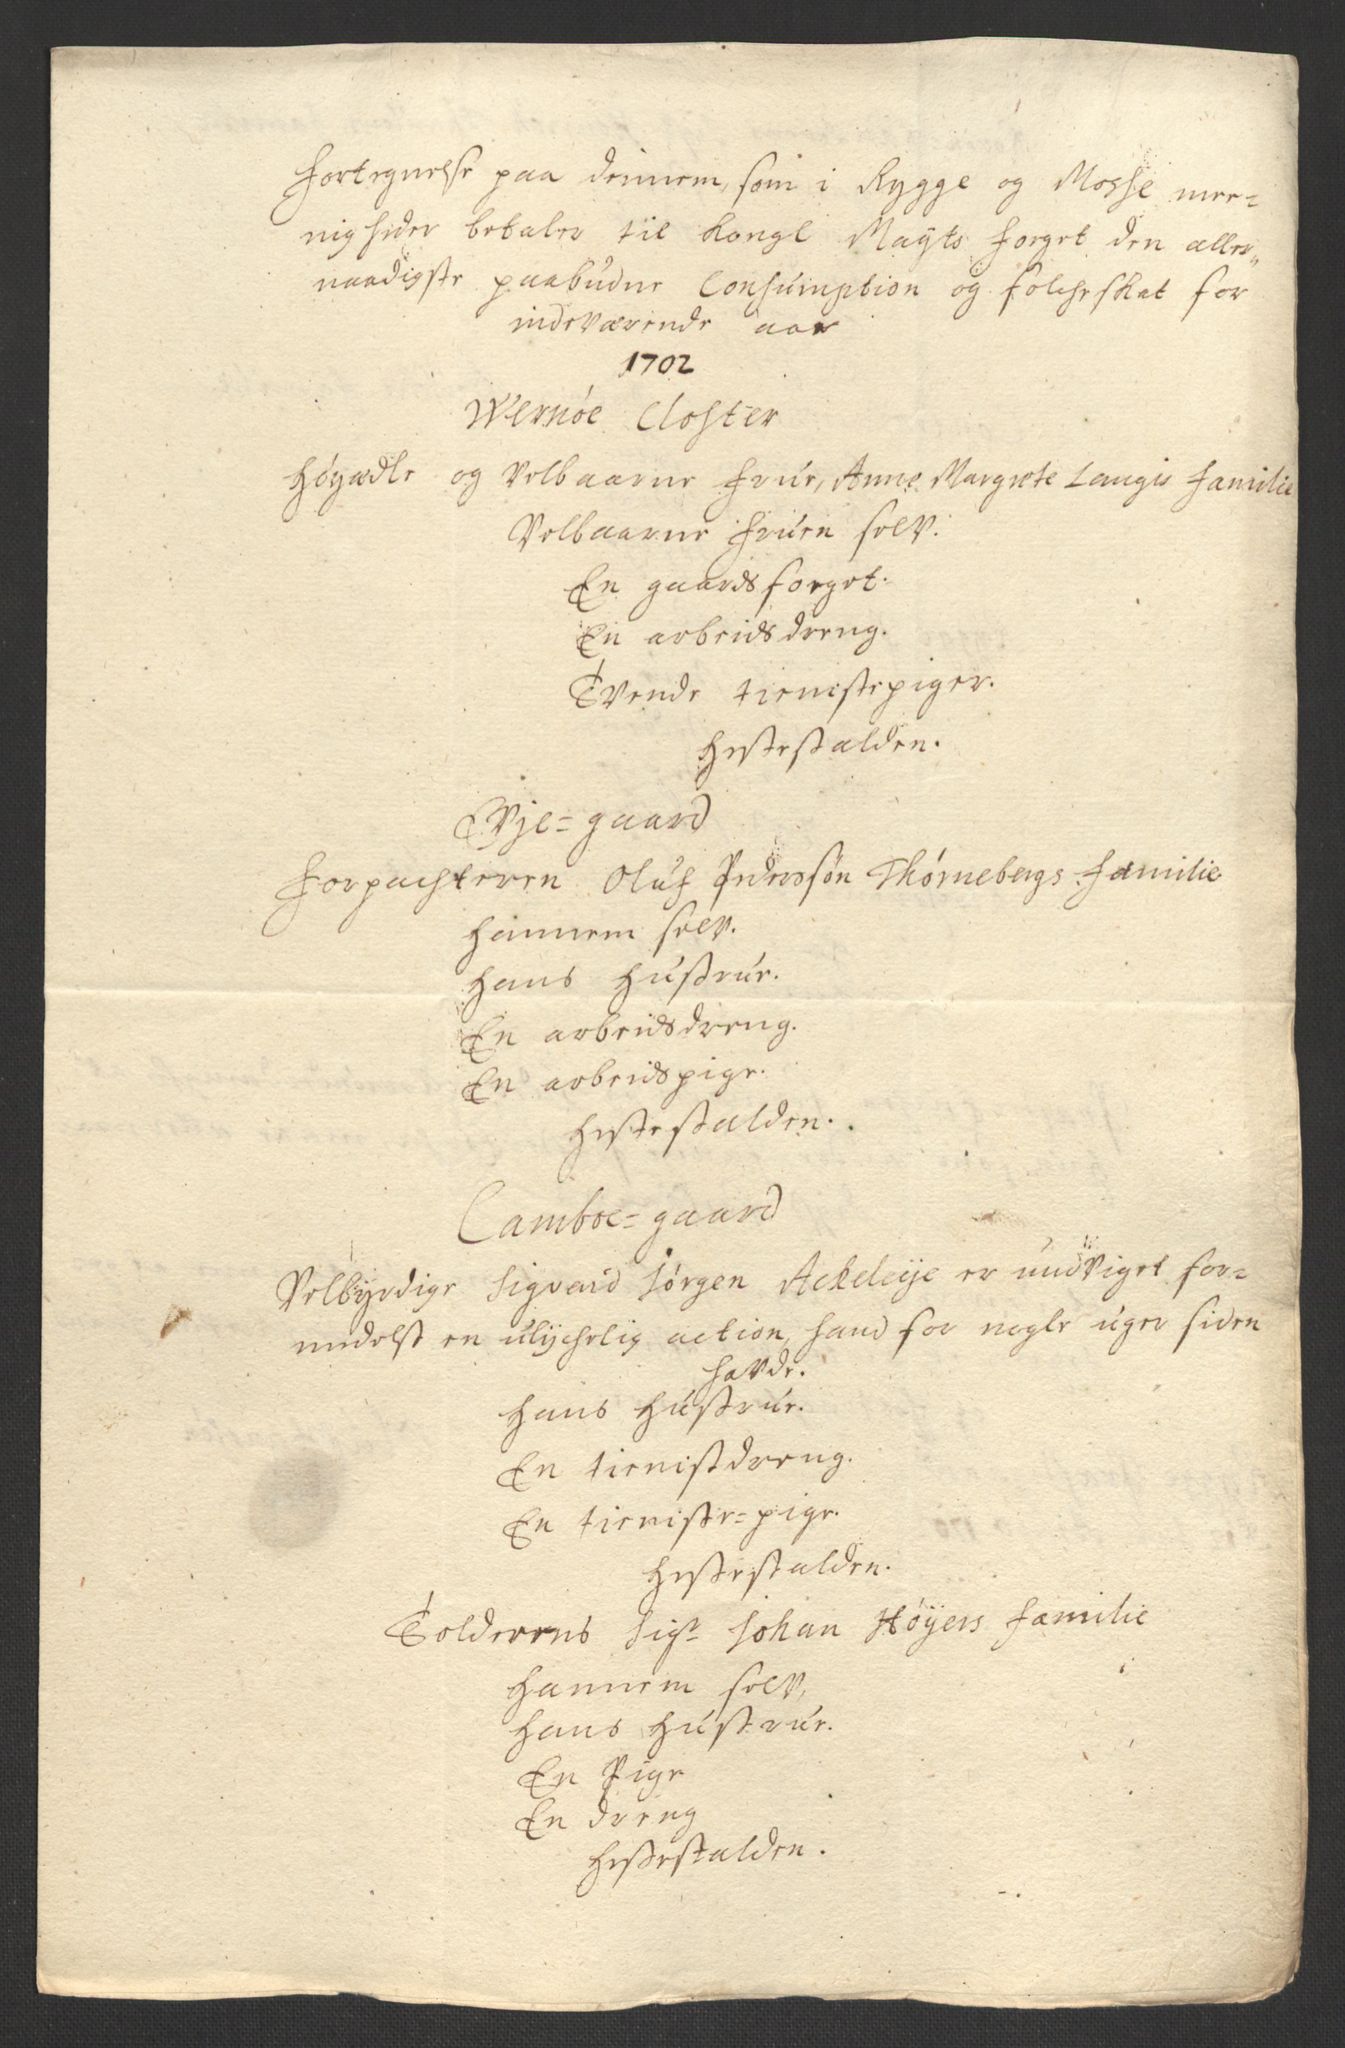 Fortegnelse paa dennem, som i Rygge og Mosse mee-
nigheder betaler til Kongl Mayts foeget den aller-
naadigste paabudne Consumption og folcheskat for
indeværende aar
1702
Wernøe Closter
Høyædle og Velbaarne Frue, Anne Margrete Langis Familie
Velbaarne Fruen selv.
En gaards foeget.
En arbeids dreng.
Tvende tienistepiger.
Hestestalden.
Evje-gaard
Forpachteren Oluf Pederssøn Thørnebergs Familie
Hannem selv.
Hans Hustrue.
En arbeidsdreng.
En arbeidspige.
Hestestalden.
Camboe-gaard
Velbyrdige Sigvard Jørgen Ackeleije er undviget for-
midelst en ulychelig action, hand for nogle uger siden
hafde.
Hans Hustrue.
En tienistdreng.
En tieniste-pige.
Hestestalden.
Tolderens Sigr Johan Høyers Familie
Hannem selv,
Hans Hustrue.
En Pige
En dreng
Hestestalden.